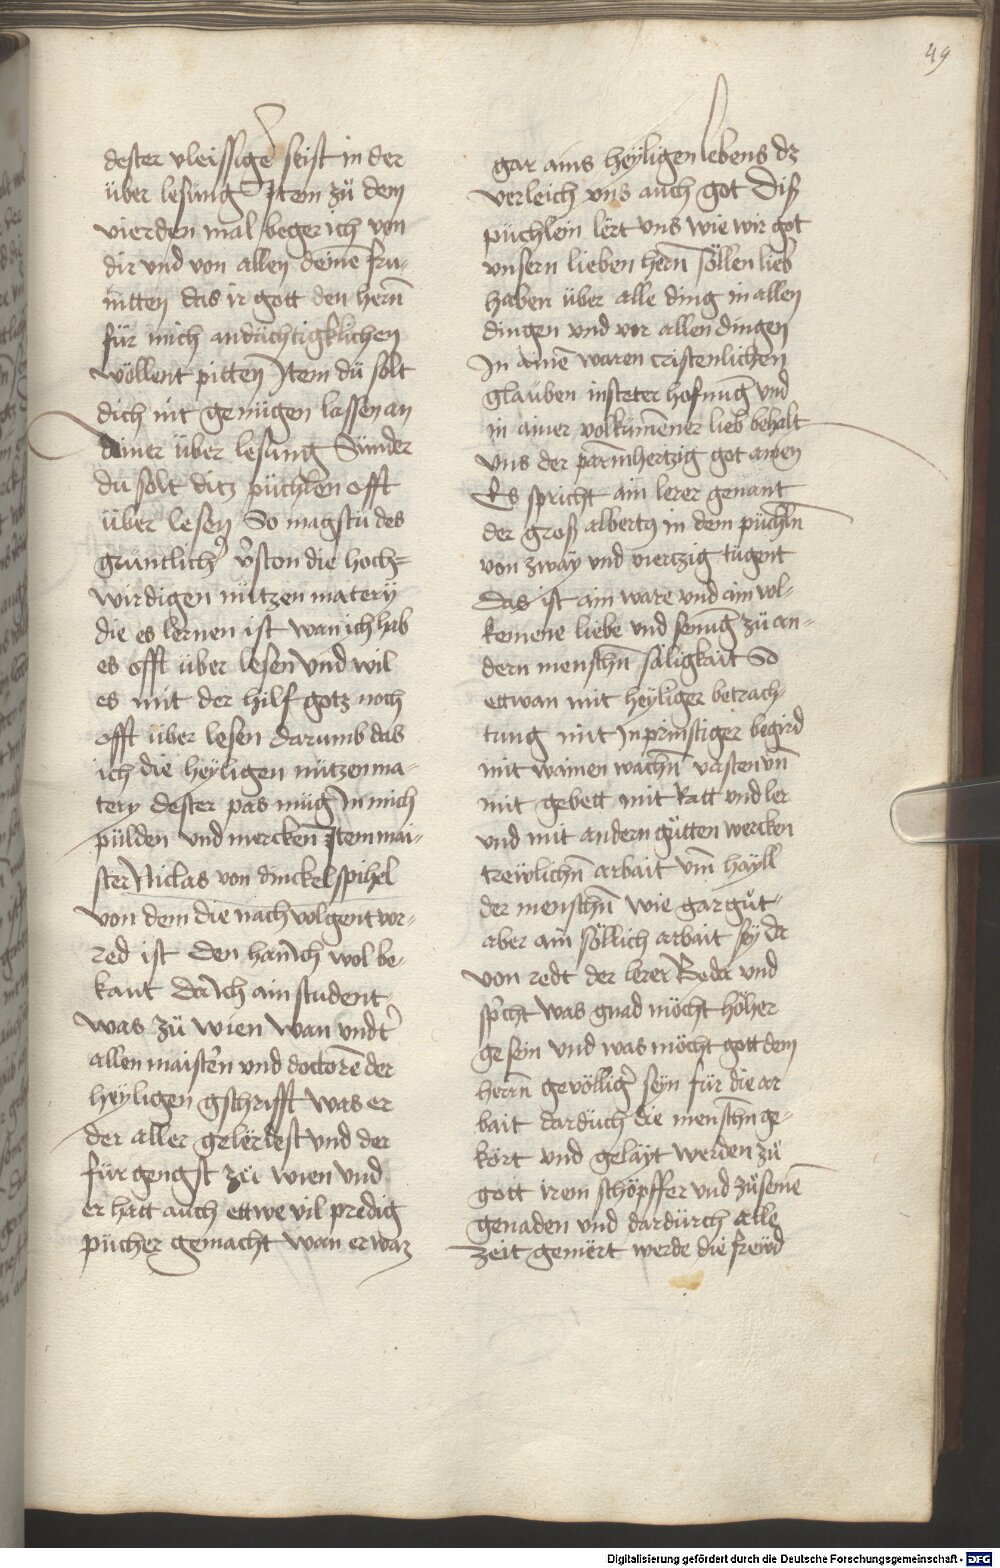 49
dester vleissiger seist in der
über lesung Item zü dem
vierden mal beger ich von
dir vnd von allen deinē fru-
nitten das ir gott den hern̄
für mich andächtigklichen
wöllent pitten Item dü solt
dich nit genügen lassen an
dainer über lesung Sunder
du solt ditz püchlen offt
über lesen So magstu des
grüntlichʼ vʼston die hoch-
wirdigen nützen matery
die es lernen ist wan ich hab
es offt über lesen vnd wil
es mit der hilf gotz noch
offt über lesen darumb das
ich die heyligen nützen ma-
tery dester pas müg In mich
pülden vnd mercken Item mai-
ster Niclas von dinckelspihel
von dem die nach volgent vor-
red ist den han ich wol be-
kant da ich ain student
was zü wien wan vndtʼ
allen maistʼen vnd doctorē der
heyligen gschrifft was er
der aller gelertest vnd der
für gengst zü wien vnd
er hatt auch ettwe vil predig
pücher gemacht wan er waz
gar ains heyligen lebens dz
verleich vns auch got Diß
püchlein lert vns wie wir got
vnsern lieben hern̄ söllen lieb
haben über alle ding in allen
dingen vnd vor allen dingen
In ainē waren cristenlichen
glauben in steter hofnūg vnd
in ainer volkumener lieb behalt
vns der parmhertzig got amen
Es spricht ain lerer genant
der groß albertꝰ in dem püchlīn
von zway vnd viertzig tugent
Das ist ain ware vnd ain vol-
kemene liebe vnd senūg zü an-
dern menschn̄ säligkait So
ettwan mit heyliger betrach-
tung mit Inprinstiger begird
mit wainen wachn̄ vasten vn̄
mit gebett mit Ratt vnd ler
vnd mit andern gütten wercken
trewlichn̄ arbait vm̄ hayll
der menschn̄ wie gar güt
aber ain söllich arbait sey da
von redt der lerer Beda vnd
spʼcht was gnad möcht höher
gesein vnd was möcht gott dem
herrn̄ gevölligʼ seyn für die ar
bait dardüch die menschn̄ ge-
kört vnd gelayt werden zü
gott irem schöpffer vnd zü seinē
genaden vnd dardürch alle
zeit gemert werde die frewd
Digitalisierung gefördert durch die Deutsche Forschungsgemeinschaft - DFG